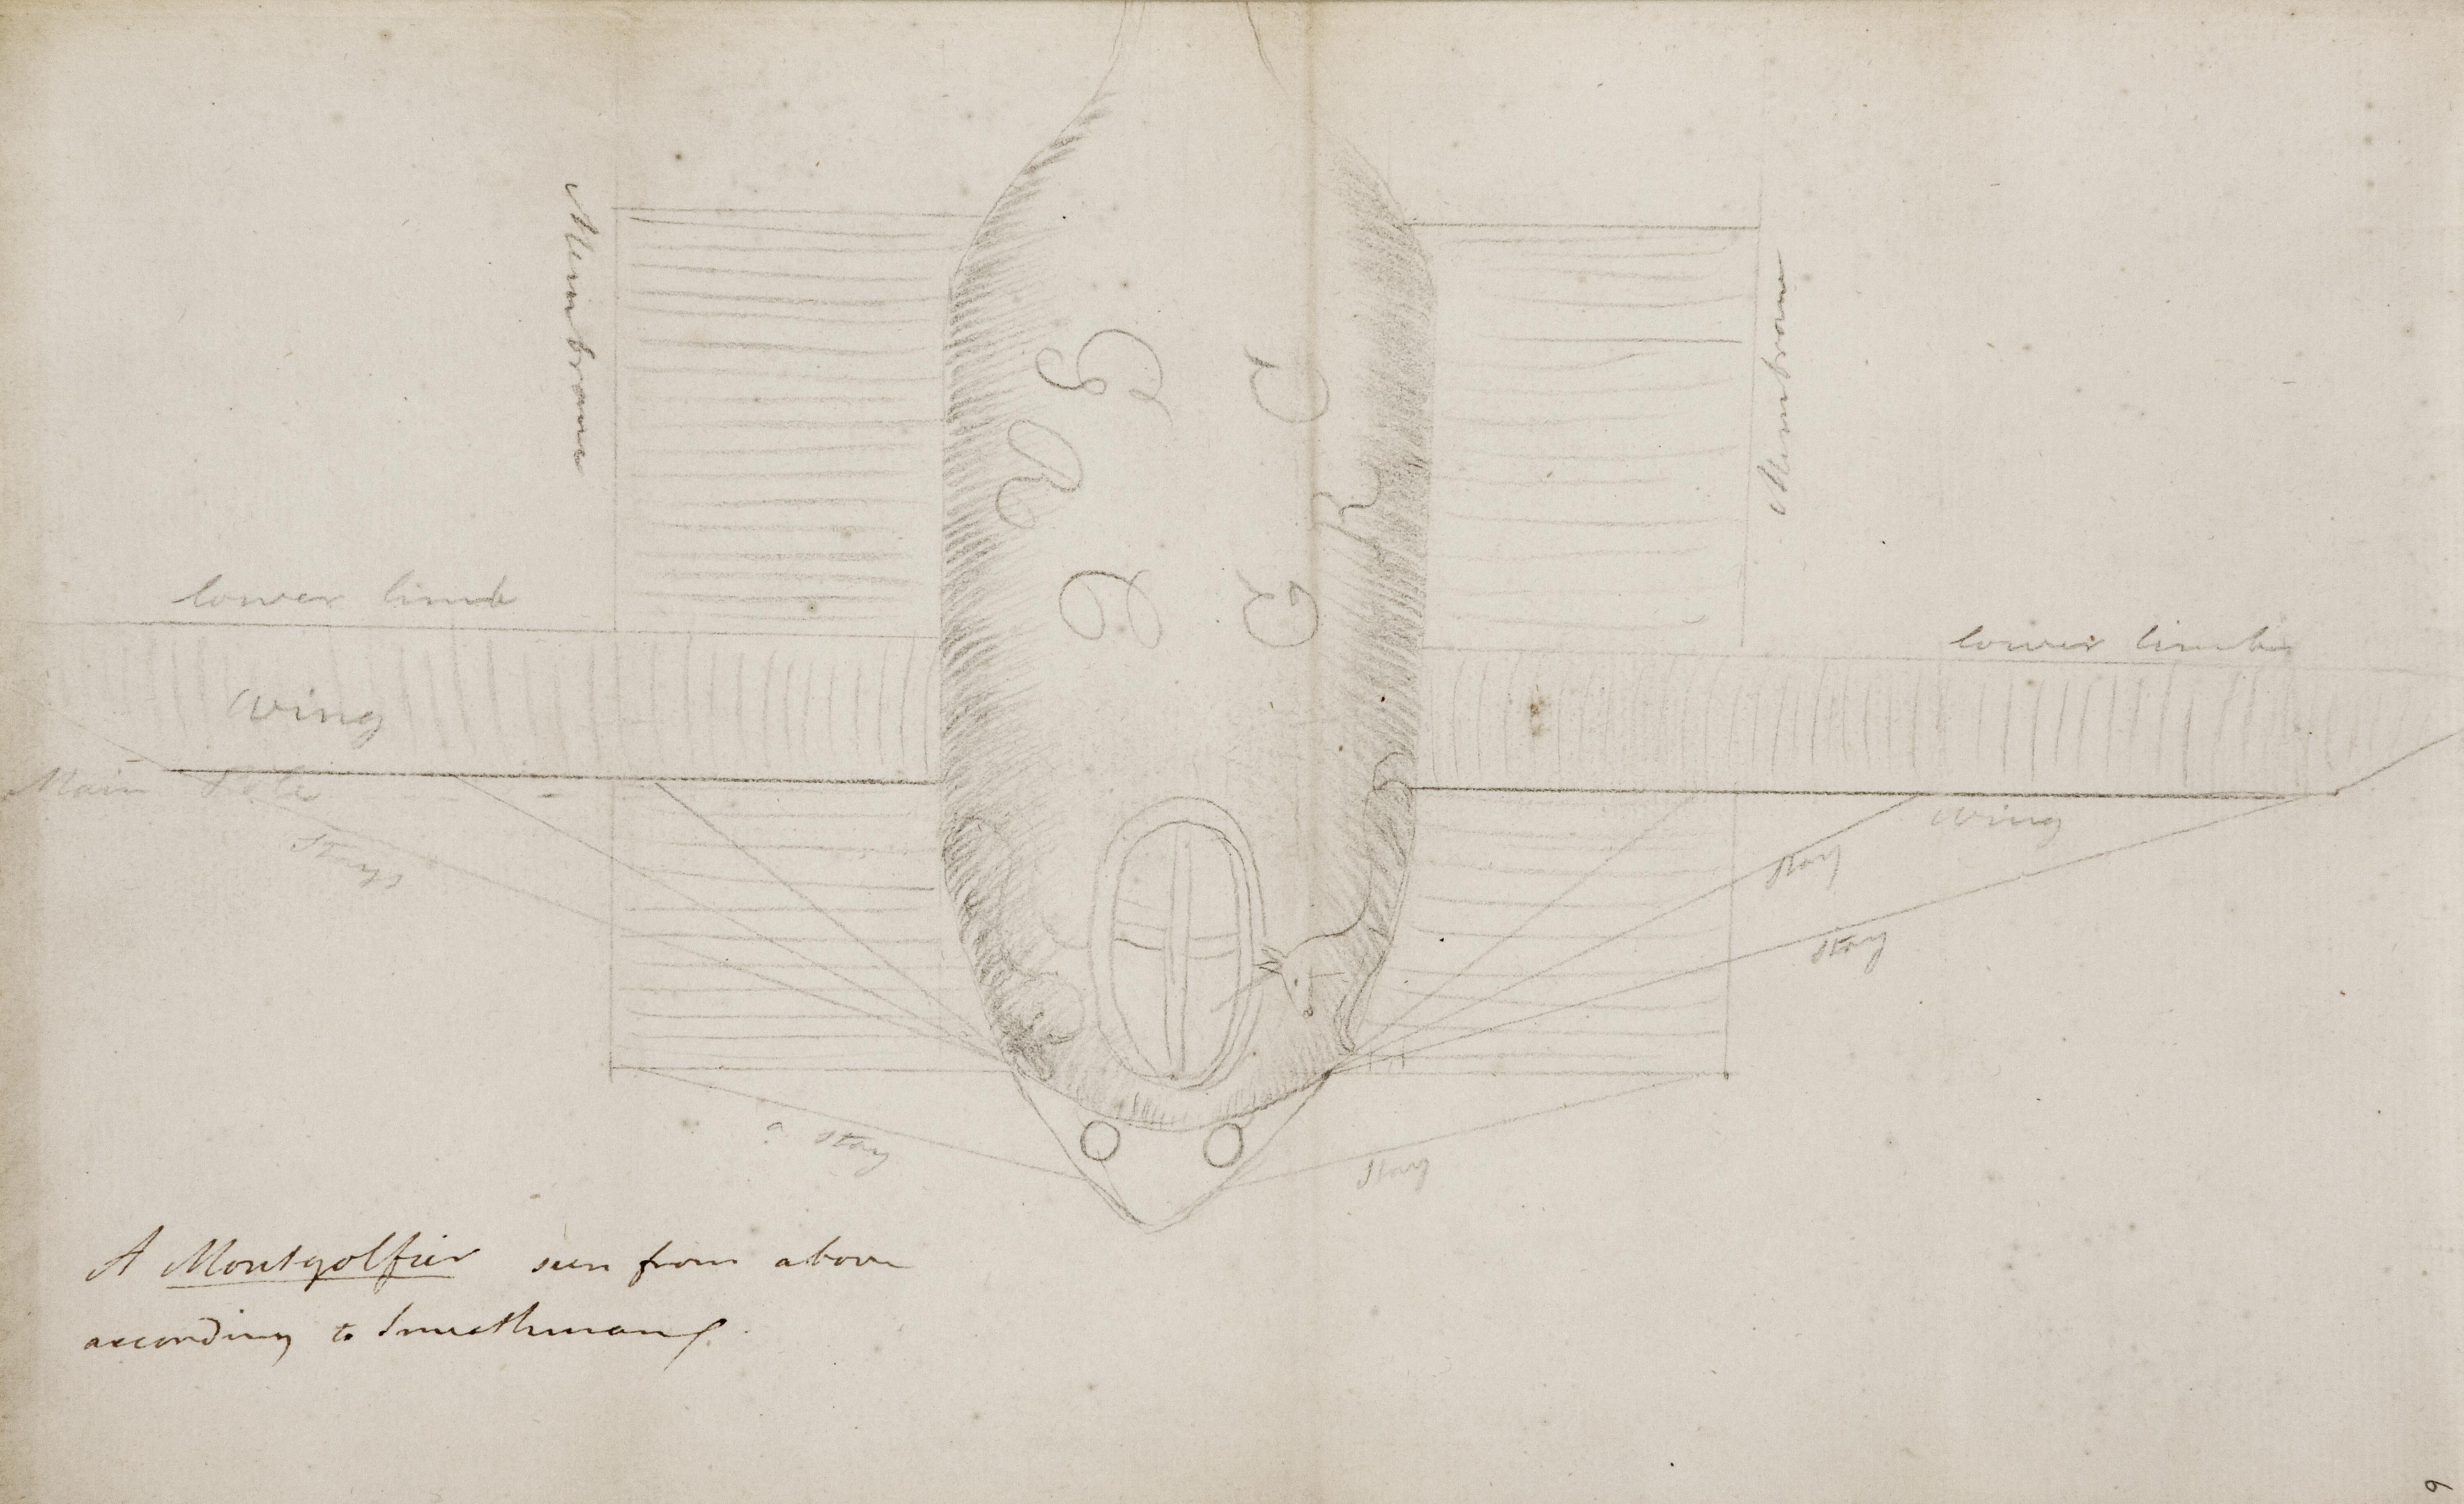 Membrane
Membrane
lower limb
lower limb
wing
Main Pole
wing
Stays
Stay
Stay
a Stay
Stay
A Montgolfier seen from above
according to Smeathman